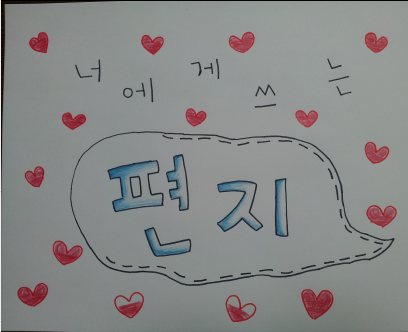 너에게 쓰는
편지